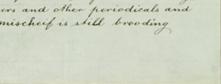 ers and other periodicals and
mischief is still brooding